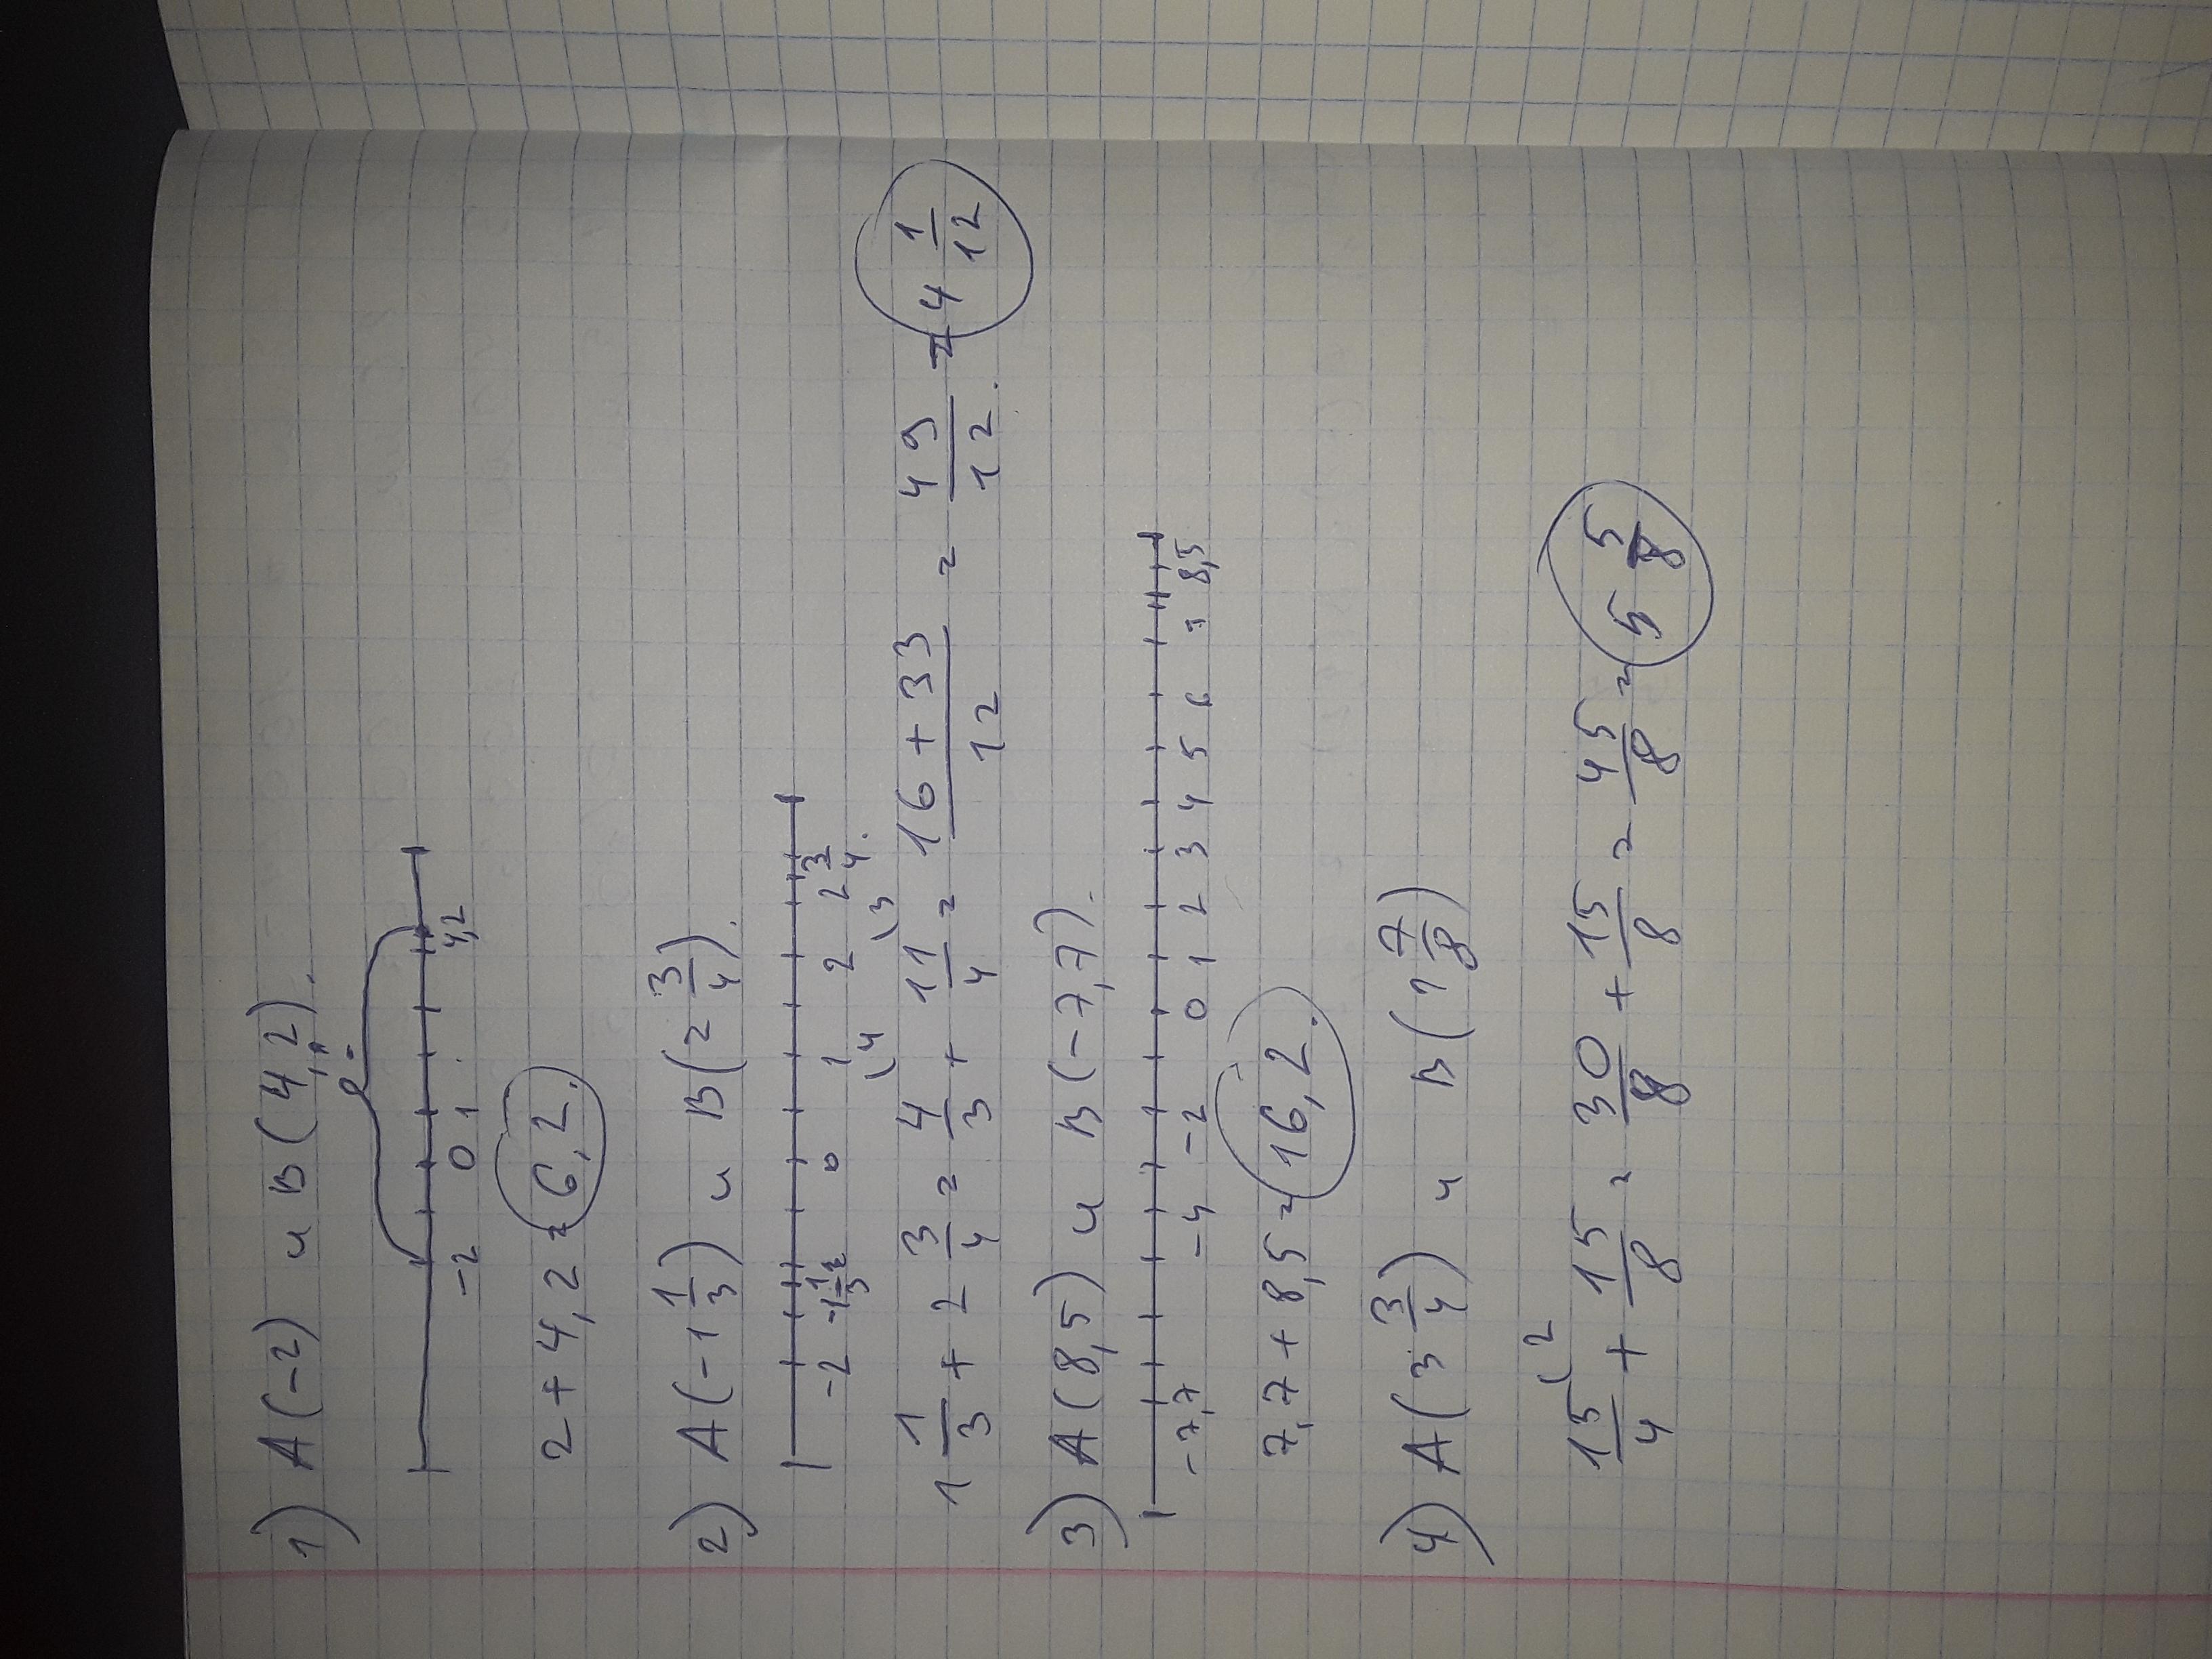 1) А(-2) и В(4,2).
-2 0 1 4,2
2+4,2=6,2.
2) А(-1 1/3) и В(2 3/4).
-2 -1 1/3 0 1 2 2 3/4
1 1/3 + 2 3/4 = 4/3 (4 + 11/4 (3 = 16+33/12 = 49/12 = 4 1/12
3) А(8,5) и В(-7,7).
-7,7 -4 -2 0 1 2 3 4 5 6 7 8,5
7,7+8,5=16,2.
4) А(3 3/4) и В(1 7/8)
15/4 (2 + 15/8 = 30/8 + 15/8 = 45/8 = 5 5/8